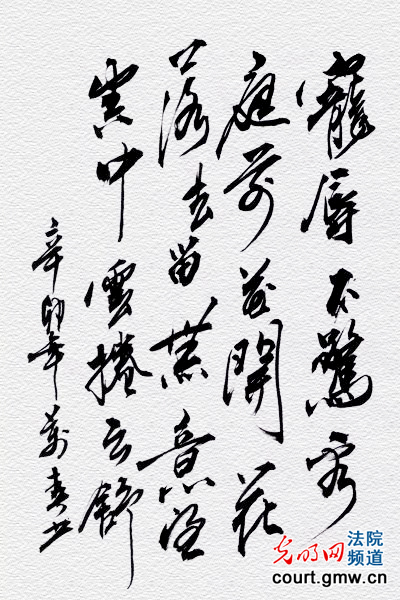 寵辱不驚看
庭前花開花
落去留無意望
空中雲捲云舒
辛卯年萬春书
光明网 法院频道
court.gmw.cn